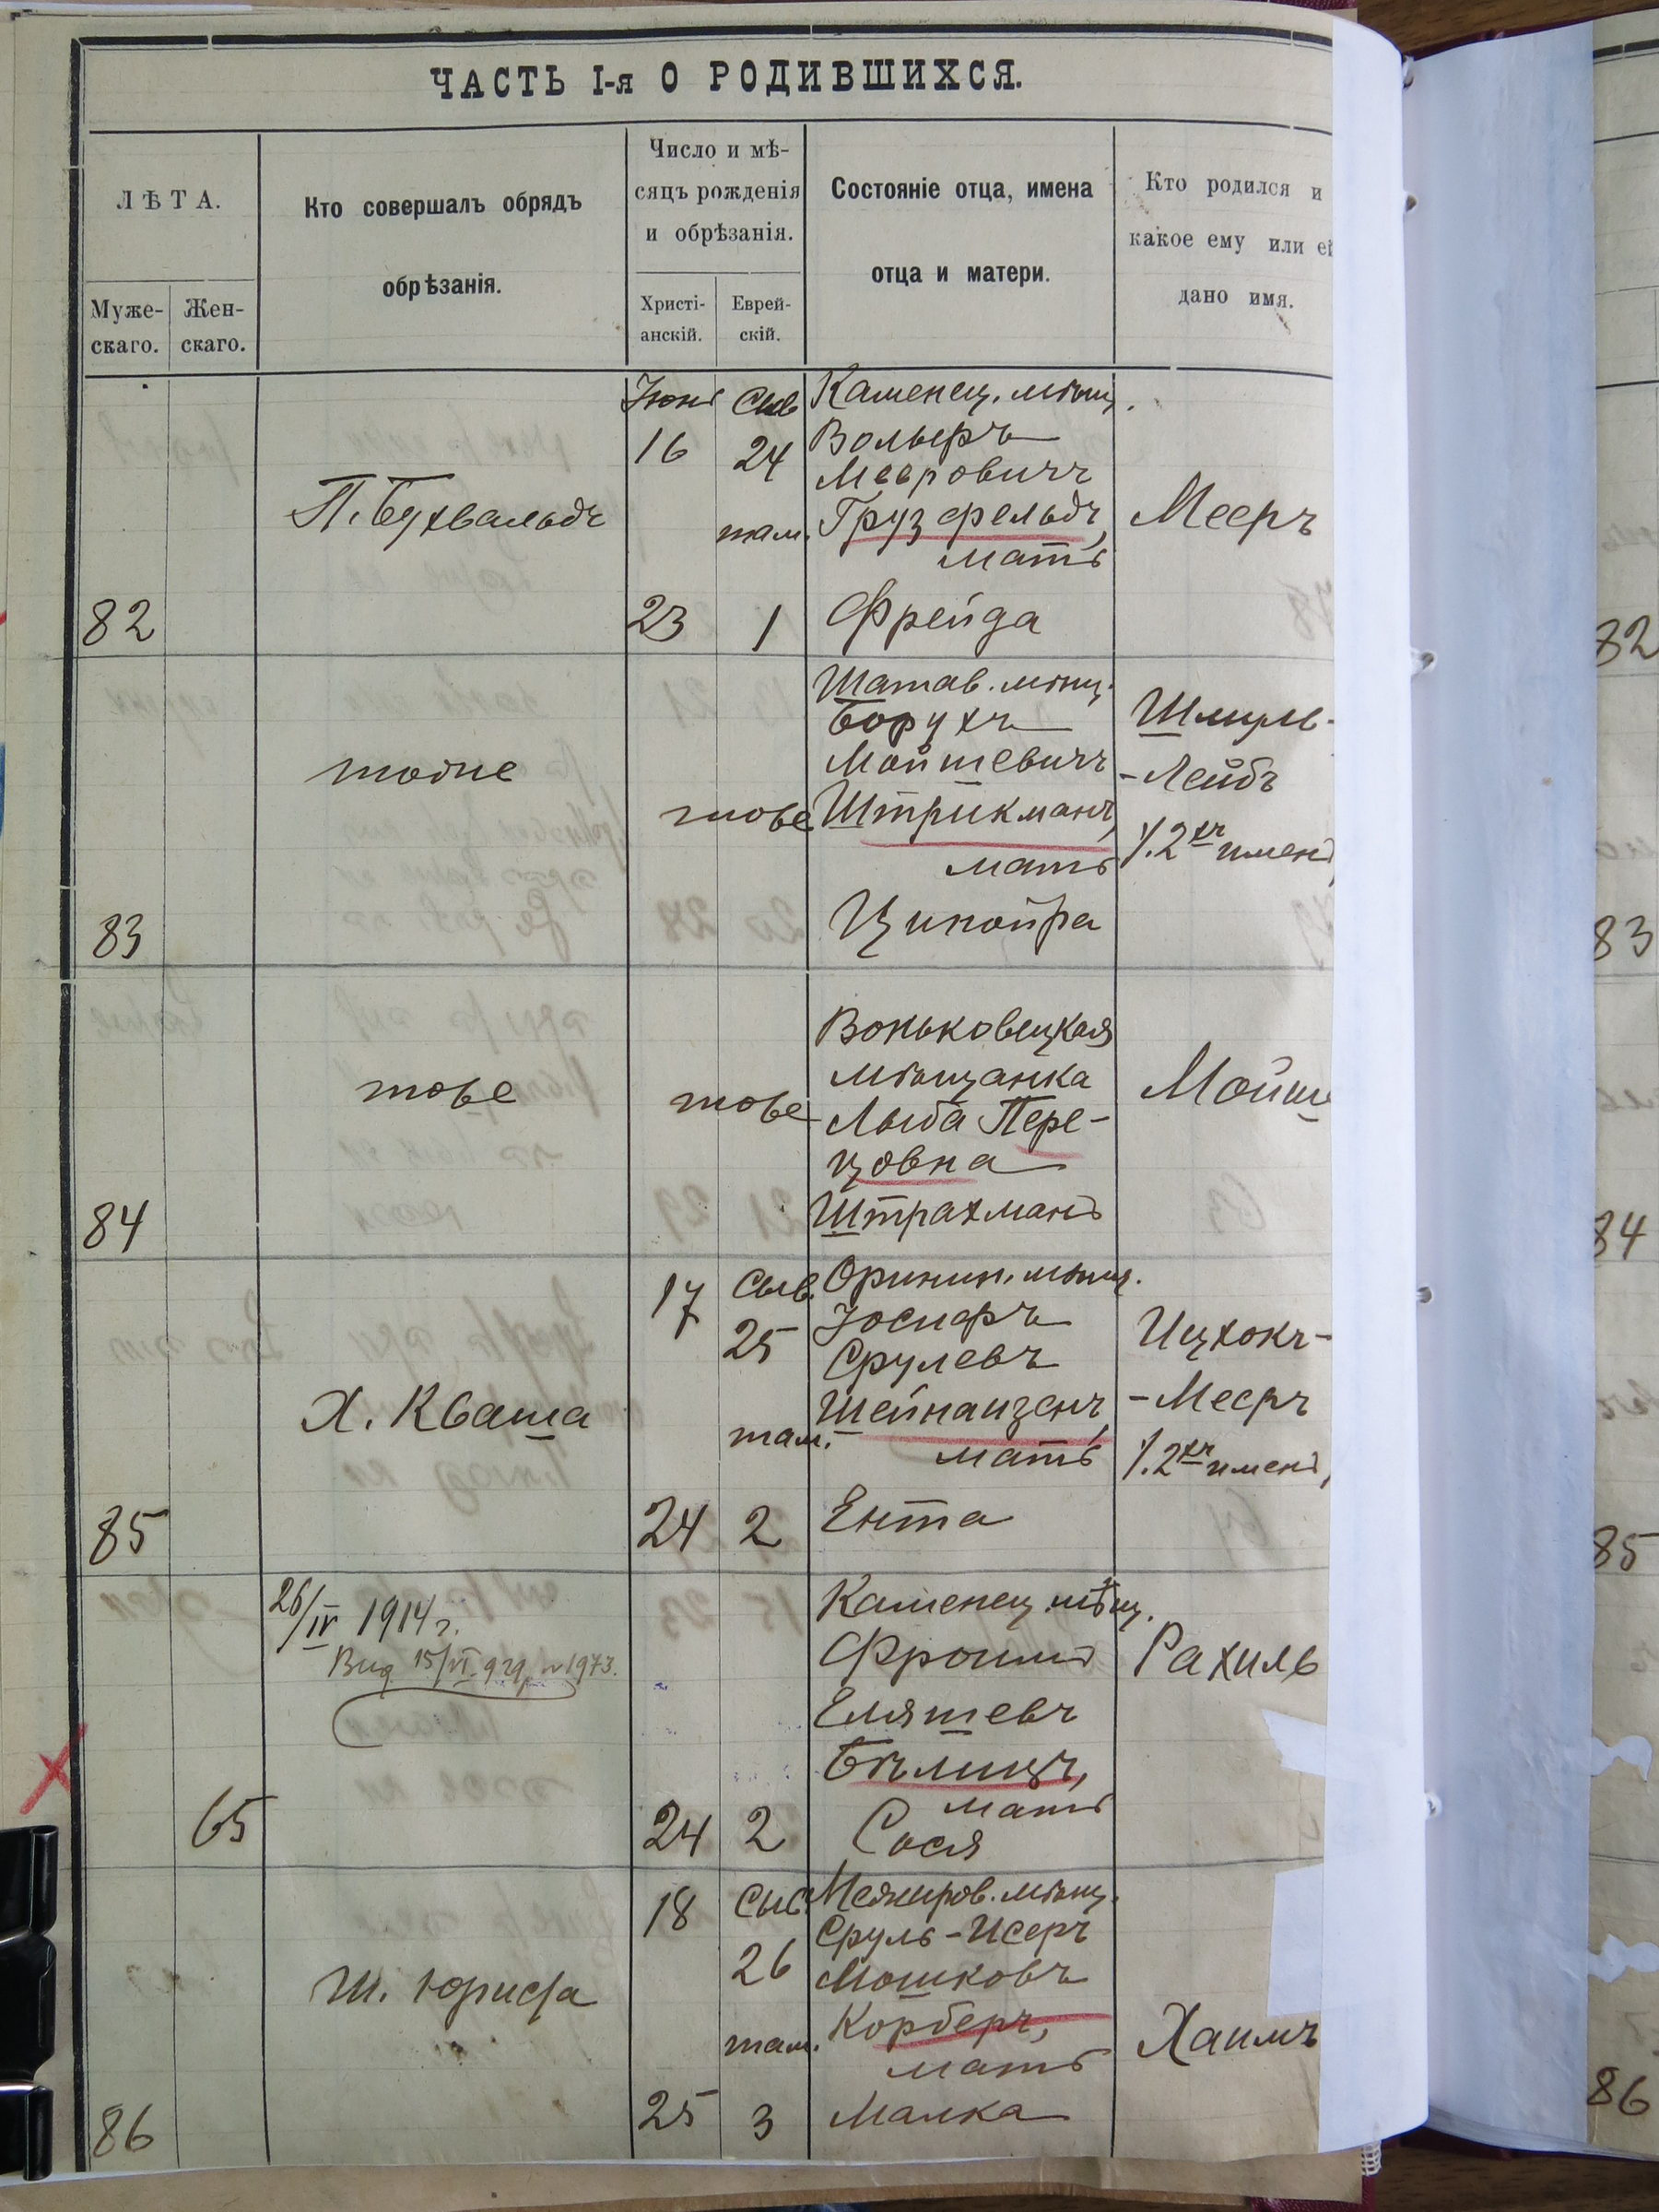 ЧАСТЬ I-я О РОДИВШИХСЯ.
ЛѢТА.
Муже-
скаго.
Жен-
скаго.
Кто совершалъ обрядъ
обрѣзанія.
Число и мѣ-
сяцъ рожденія
и обрѣзанія.
Христі-
анскій.
Еврей-
скій.
Состояніе отца, имена
отца и матери.
Кто родился и
какое ему или еі
дано имя.
82
П. Бухвальдъ
Іюня
16
23
Сив
24
там.
1
Каменец. мѣщ.
Вольфъ
Мееровичъ
Грузфельдъ,
мать
Фрейда
Мееръ
83
тотже
тоже
Шатав. мѣщ.
Борухъ
Мойшевичъ
Штрикманъ,
мать
Ципойра
Шмуль-
-Лейбъ
/. 2хъ имен,
84
тоже
тоже
Воньковецкая
мѣщанка
Лыба Пере-
цовна
Штрахманъ
Мойше
85
Х. Кваша
17
24
Сив.
25
там.
2
Оринин. мѣщ.
Іосифъ
Срулевъ
Шейнаизенъ,
мать
Ента
Ицхокъ-
-Мееръ
/. 2хъ имен,
65
26/IV 1914 г.
Выд. 15/VI 929 N 1973.
24
2
Каменец. мѣщ.
Фроимъ
Еляшевъ
Бѣлицъ,
мать
Сося
Рахиль
86
Ш. Юрисфа
18
25
Сив.
26
там.
3
Межиров. мѣщ.
Сруль-Исеръ
Мошковъ
Корберъ,
мать
Малка
Хаимъ
82
83
84
85
86